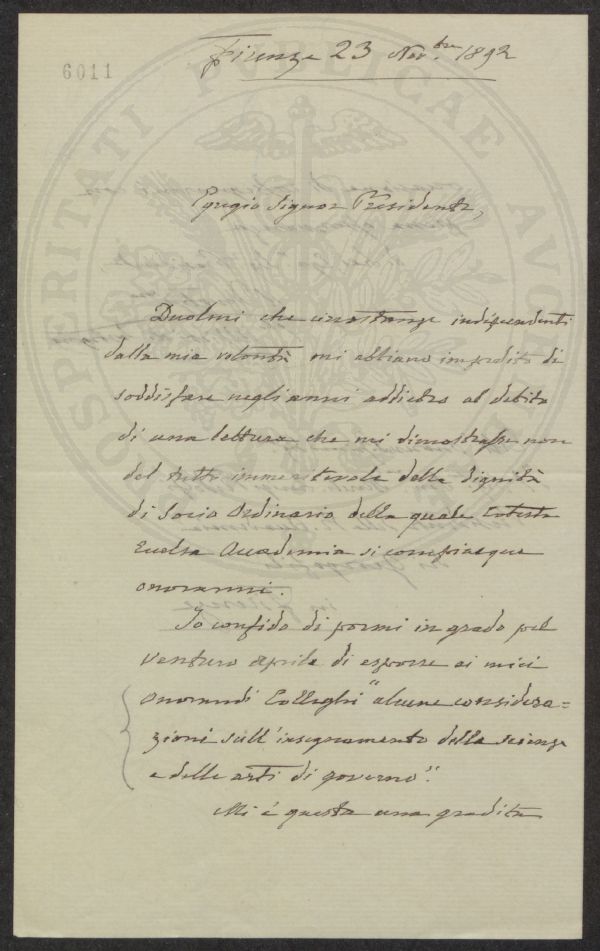 6011
Firenze 23 Nov.bre 1892
PROSPERITATI PUBLICAE
Egregio Signor Presidente,
Duolmi che circostanze indipendenti
dalla mia volontà mi abbiano impedito di
soddisfare negli anni addietro al debito
di una lettura che mi dimostrasse non
del tutto immeritevole della dignità
di Socio Ordinario della quale codesta
Eccelsa Accademia si compiacque
onorarmi.
Io confido di pormi in grado pel
venturo aprile di esporre ai miei
onorandi Colleghi "alcune considera=
zioni sull'insegnamento della scienza
e delle arti di governo".
Mi è questa una gradita